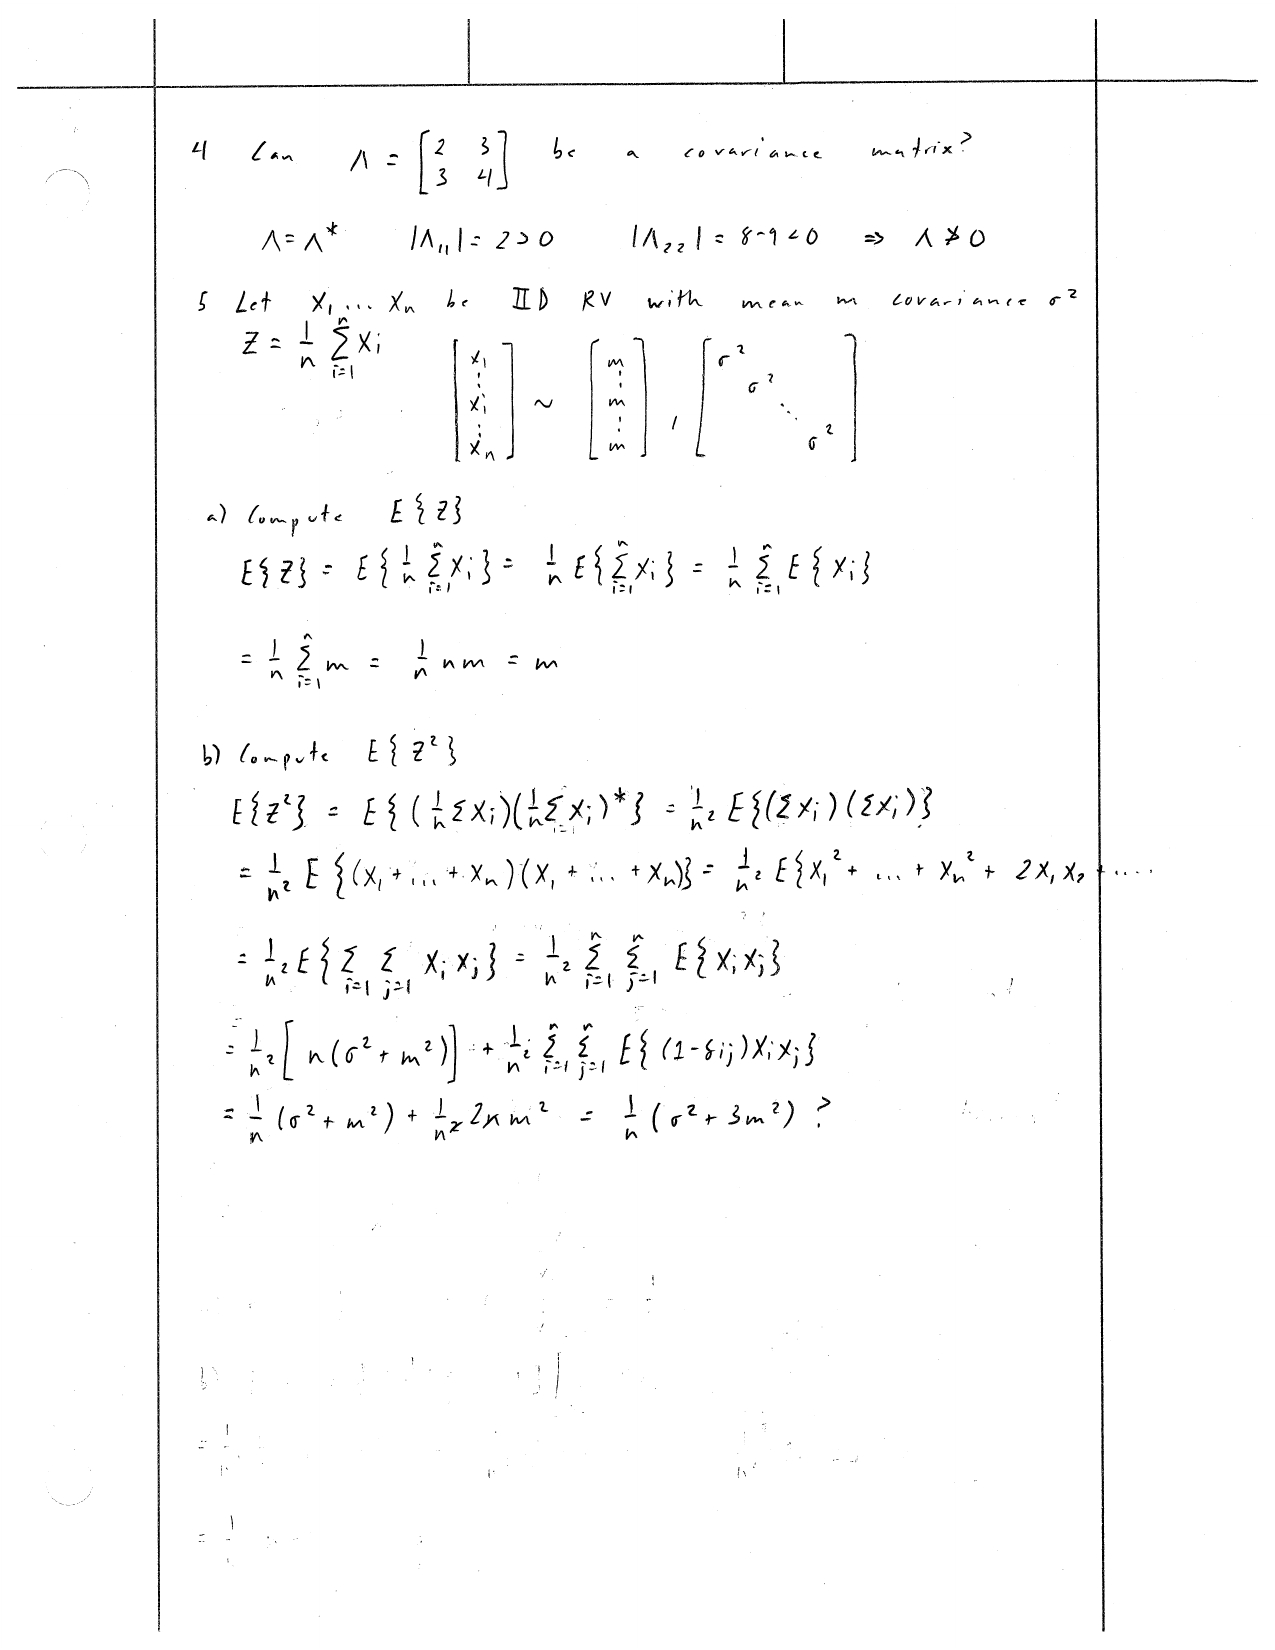 4 Can Λ = [2 3; 3 4] be a covariance matrix?
Λ = Λ* |Λ₁₁| = 2 > 0 |Λ₂₂| = 8-9 < 0 ⇒ Λ ≯ 0
5 Let X₁ ... Xₙ be IID RV with mean m covariance σ²
Z = 1/n Σᵢ₌₁ⁿ Xᵢ [x₁ ⋮ xᵢ ⋮ xₙ] ~ [m ⋮ m ⋮ m] , [σ² σ² ⋱ σ²]
a) Compute E{Z}
E{Z} = E{1/n Σᵢ₌₁ⁿ Xᵢ} = 1/n E{Σᵢ₌₁ⁿ Xᵢ} = 1/n Σᵢ₌₁ⁿ E{Xᵢ}
= 1/n Σᵢ₌₁ⁿ m = 1/n nm = m
b) Compute E{Z²}
E{Z²} = E{(1/n ΣXᵢ)(1/n Σᵢ₌₁ Xᵢ)*} = 1/n² E{(ΣXᵢ)(ΣXᵢ)}
= 1/n² E{(X₁ + ... + Xₙ)(X₁ + ... + Xₙ)} = 1/n² E{X₁² + ... + Xₙ² + 2X₁X₂ + ....
= 1/n² E{Σᵢ₌₁ Σⱼ₌₁ XᵢXⱼ} = 1/n² Σᵢ₌₁ⁿ Σⱼ₌₁ⁿ E{XᵢXⱼ}
= 1/n² [n(σ² + m²)] + 1/n² Σᵢ₌₁ⁿ Σⱼ₌₁ⁿ E{(1-δij)XᵢXⱼ}
= 1/n (σ² + m²) + 1/n² 2nm² = 1/n (σ² + 3m²) ?